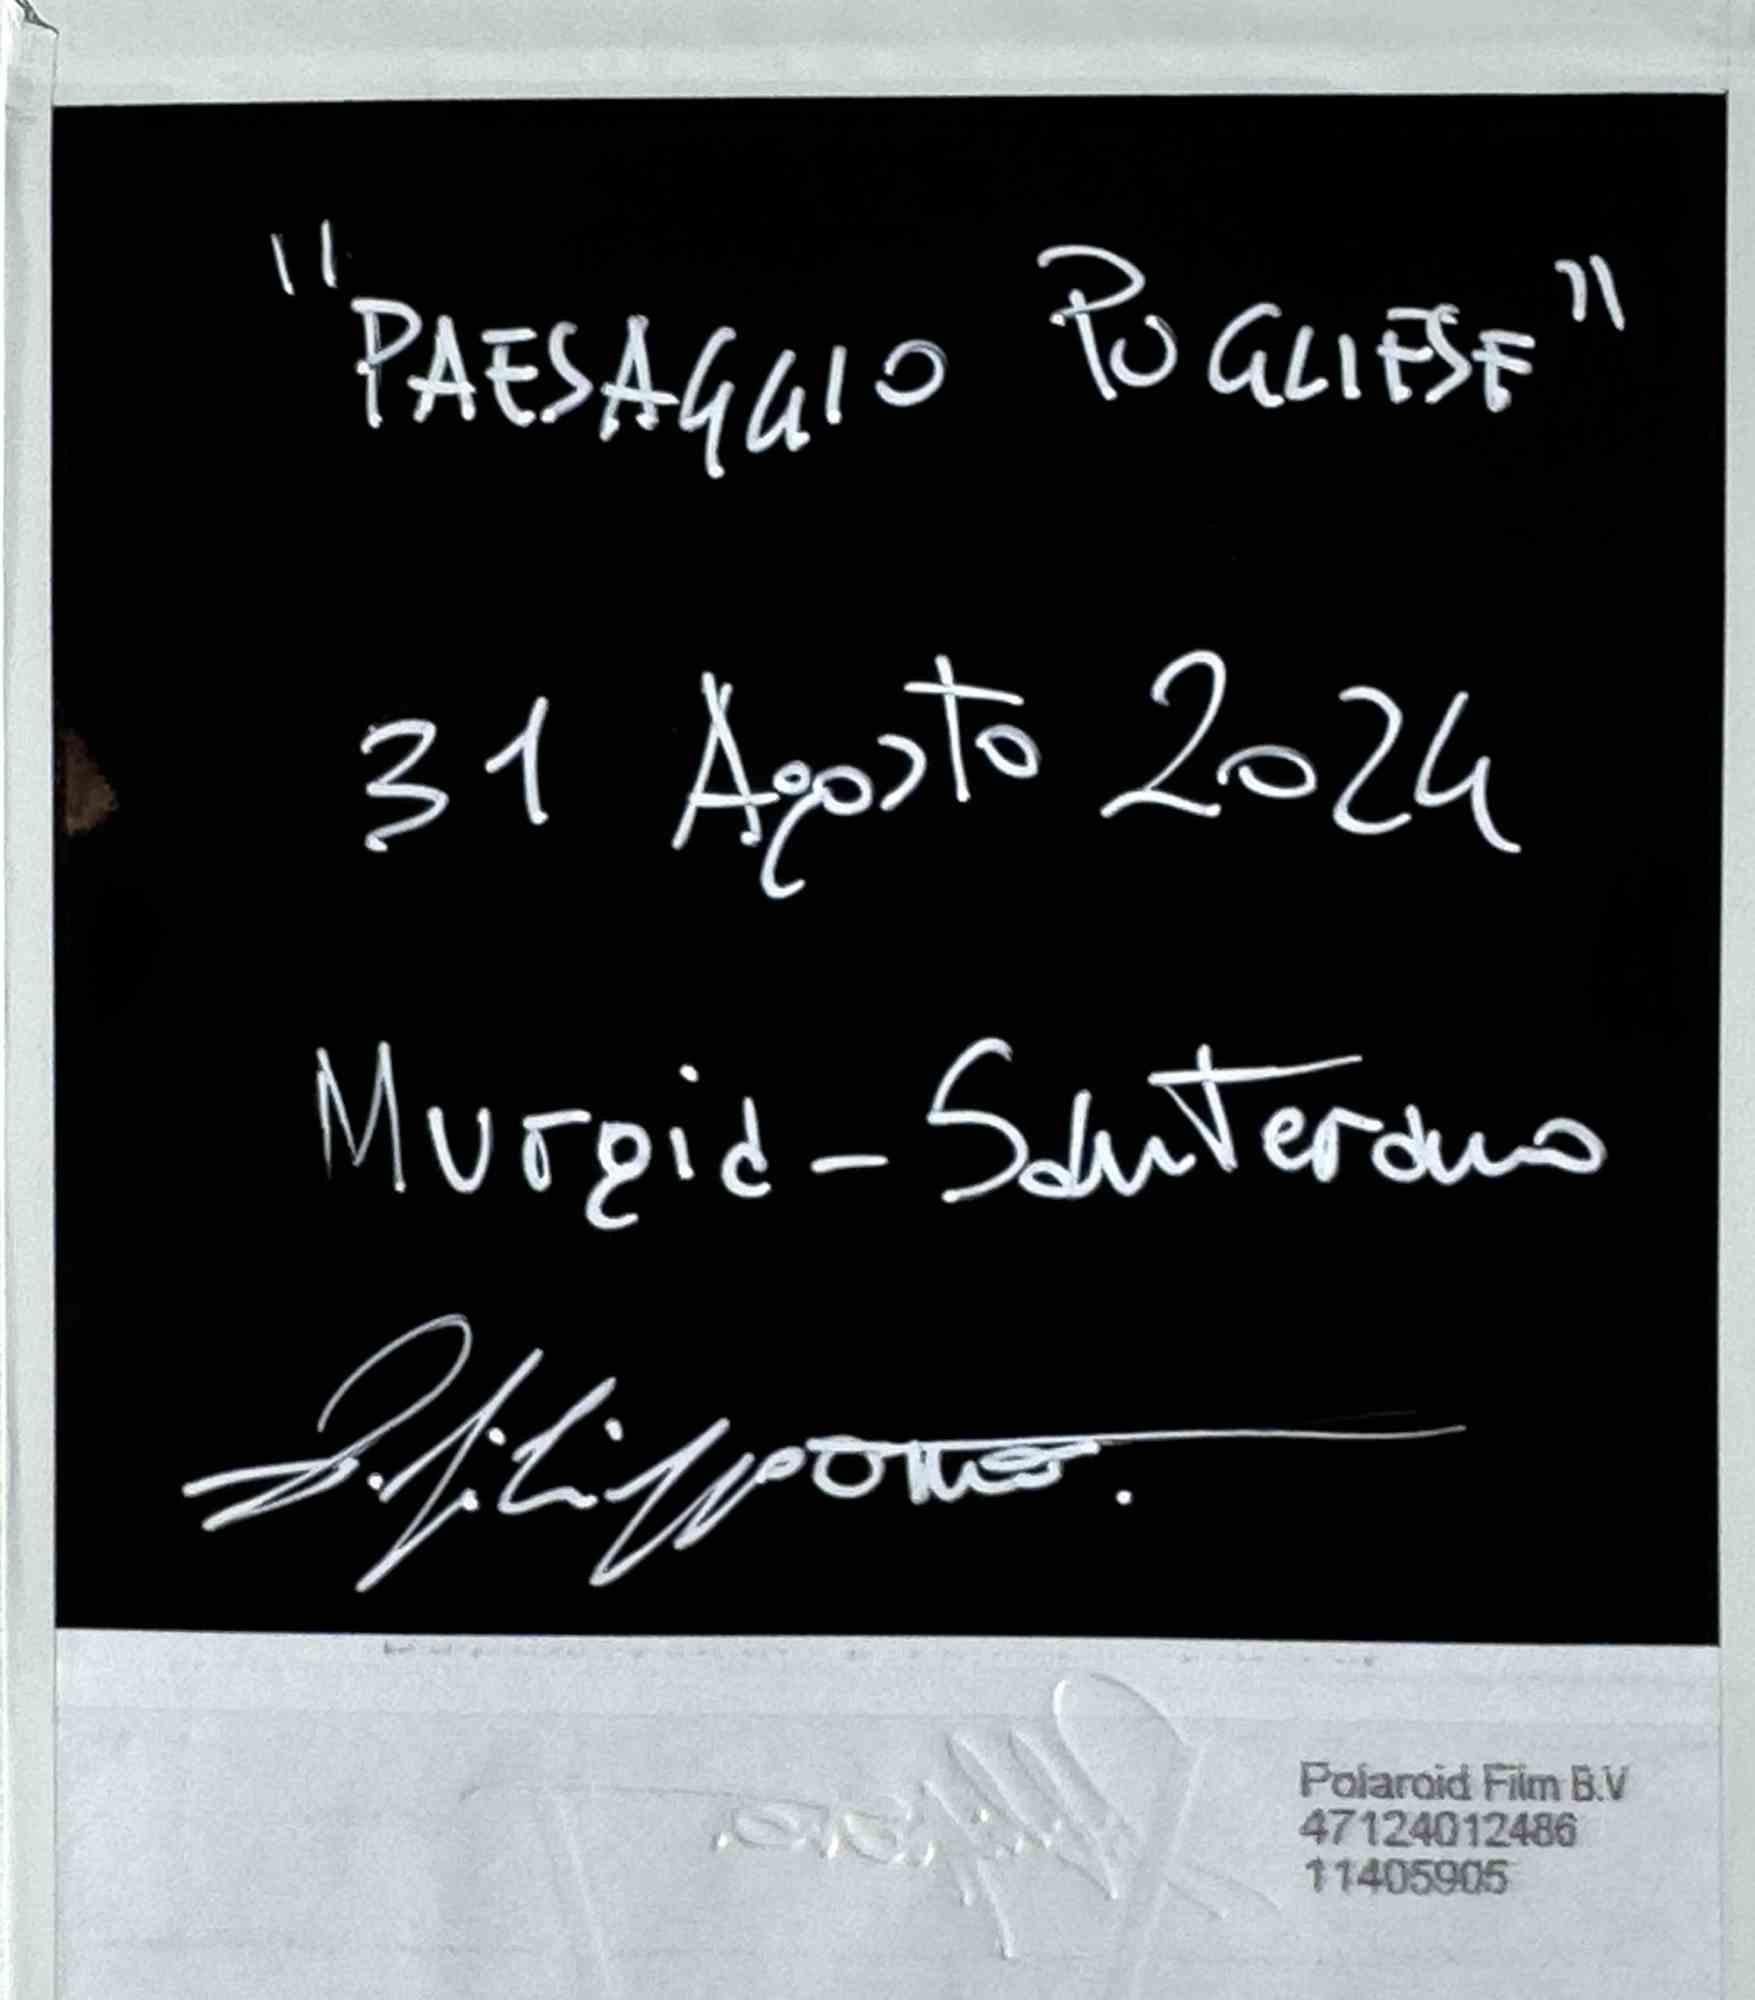 "PAESAGGIO PUGLIESE"
31 Agosto 2024
Murgia - Santeramo
Polaroid Film B.V
47124012486
11405905